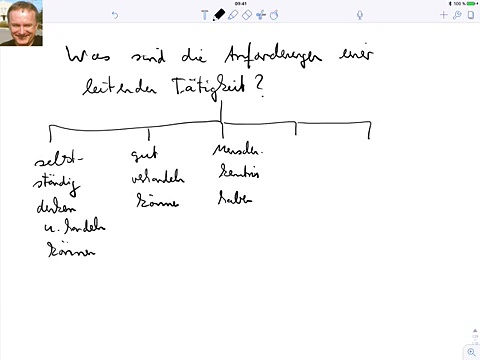 09:41
100 %
T
Was sind die Anforderungen einer
leitenden Tätigkeit?
selbst-
ständig
denken
u. handeln
können
gut
verhandeln
können
Menschen-
kenntnis
haben